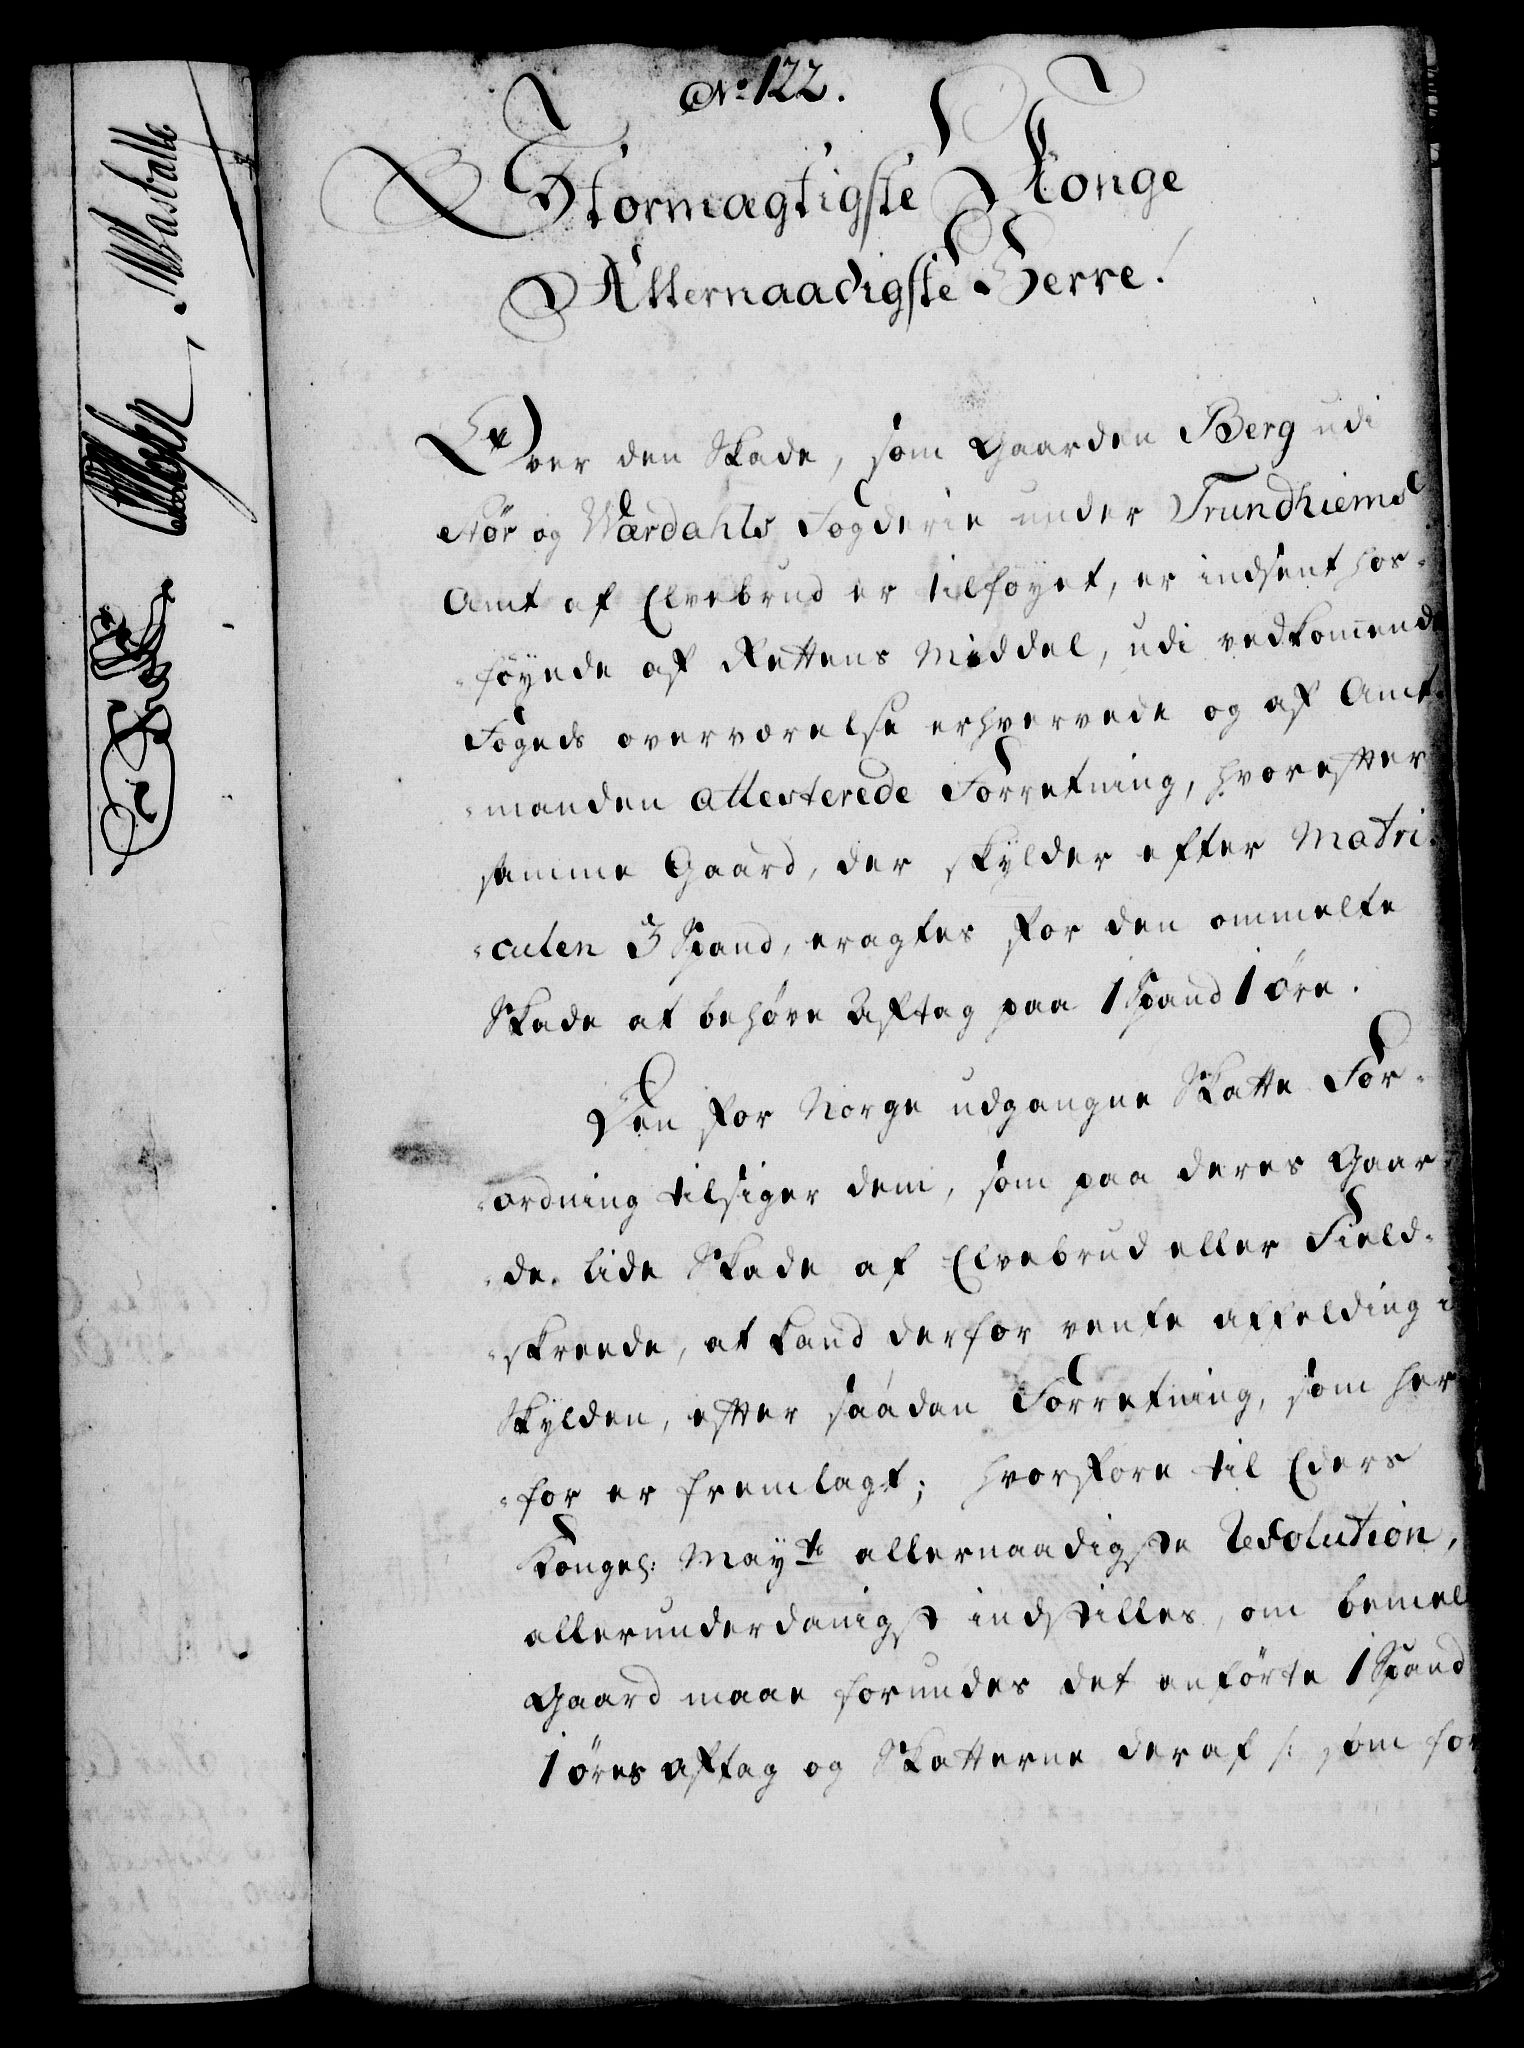 No 122.
Stormægtigste Konge
Allernaadigste Herre!
Over den Skade, som Gaarden Berg udi
Stør og Værdahls Fogderie under Trundhiems
Amt af Elvebrud er tilføyet, er indsent hos-
-føyede af Rettens Middel, udi vedkommende
Fogeds overværelse erhvervede og af Amt-
-manden attesterede Forretning, hvorefter
samme Gaard, der skylder efter Matri-
-culen 3 Spand, eragtes for den ommelte
Skade at behøve Aftag paa 1 Spand 1 øre.
Den for Norge udgangne Skatte For-
-ordning tilsiger dem, som paa deres Gaar-
-de lide Skade af Elvebrud eller Field-
-skreede, at kand derfor vente affelding i
Skylden, efter saadan Forretning, som her
-for er fremlagt; hvorfore til Eders
Kongel: Mayts allernaadigste Resolution,
allerunderdanigst indstilles, om bemel
Gaard maae forundes det anførte 1 Spand
1 øres Aftag og Skatterne deraf /: som for